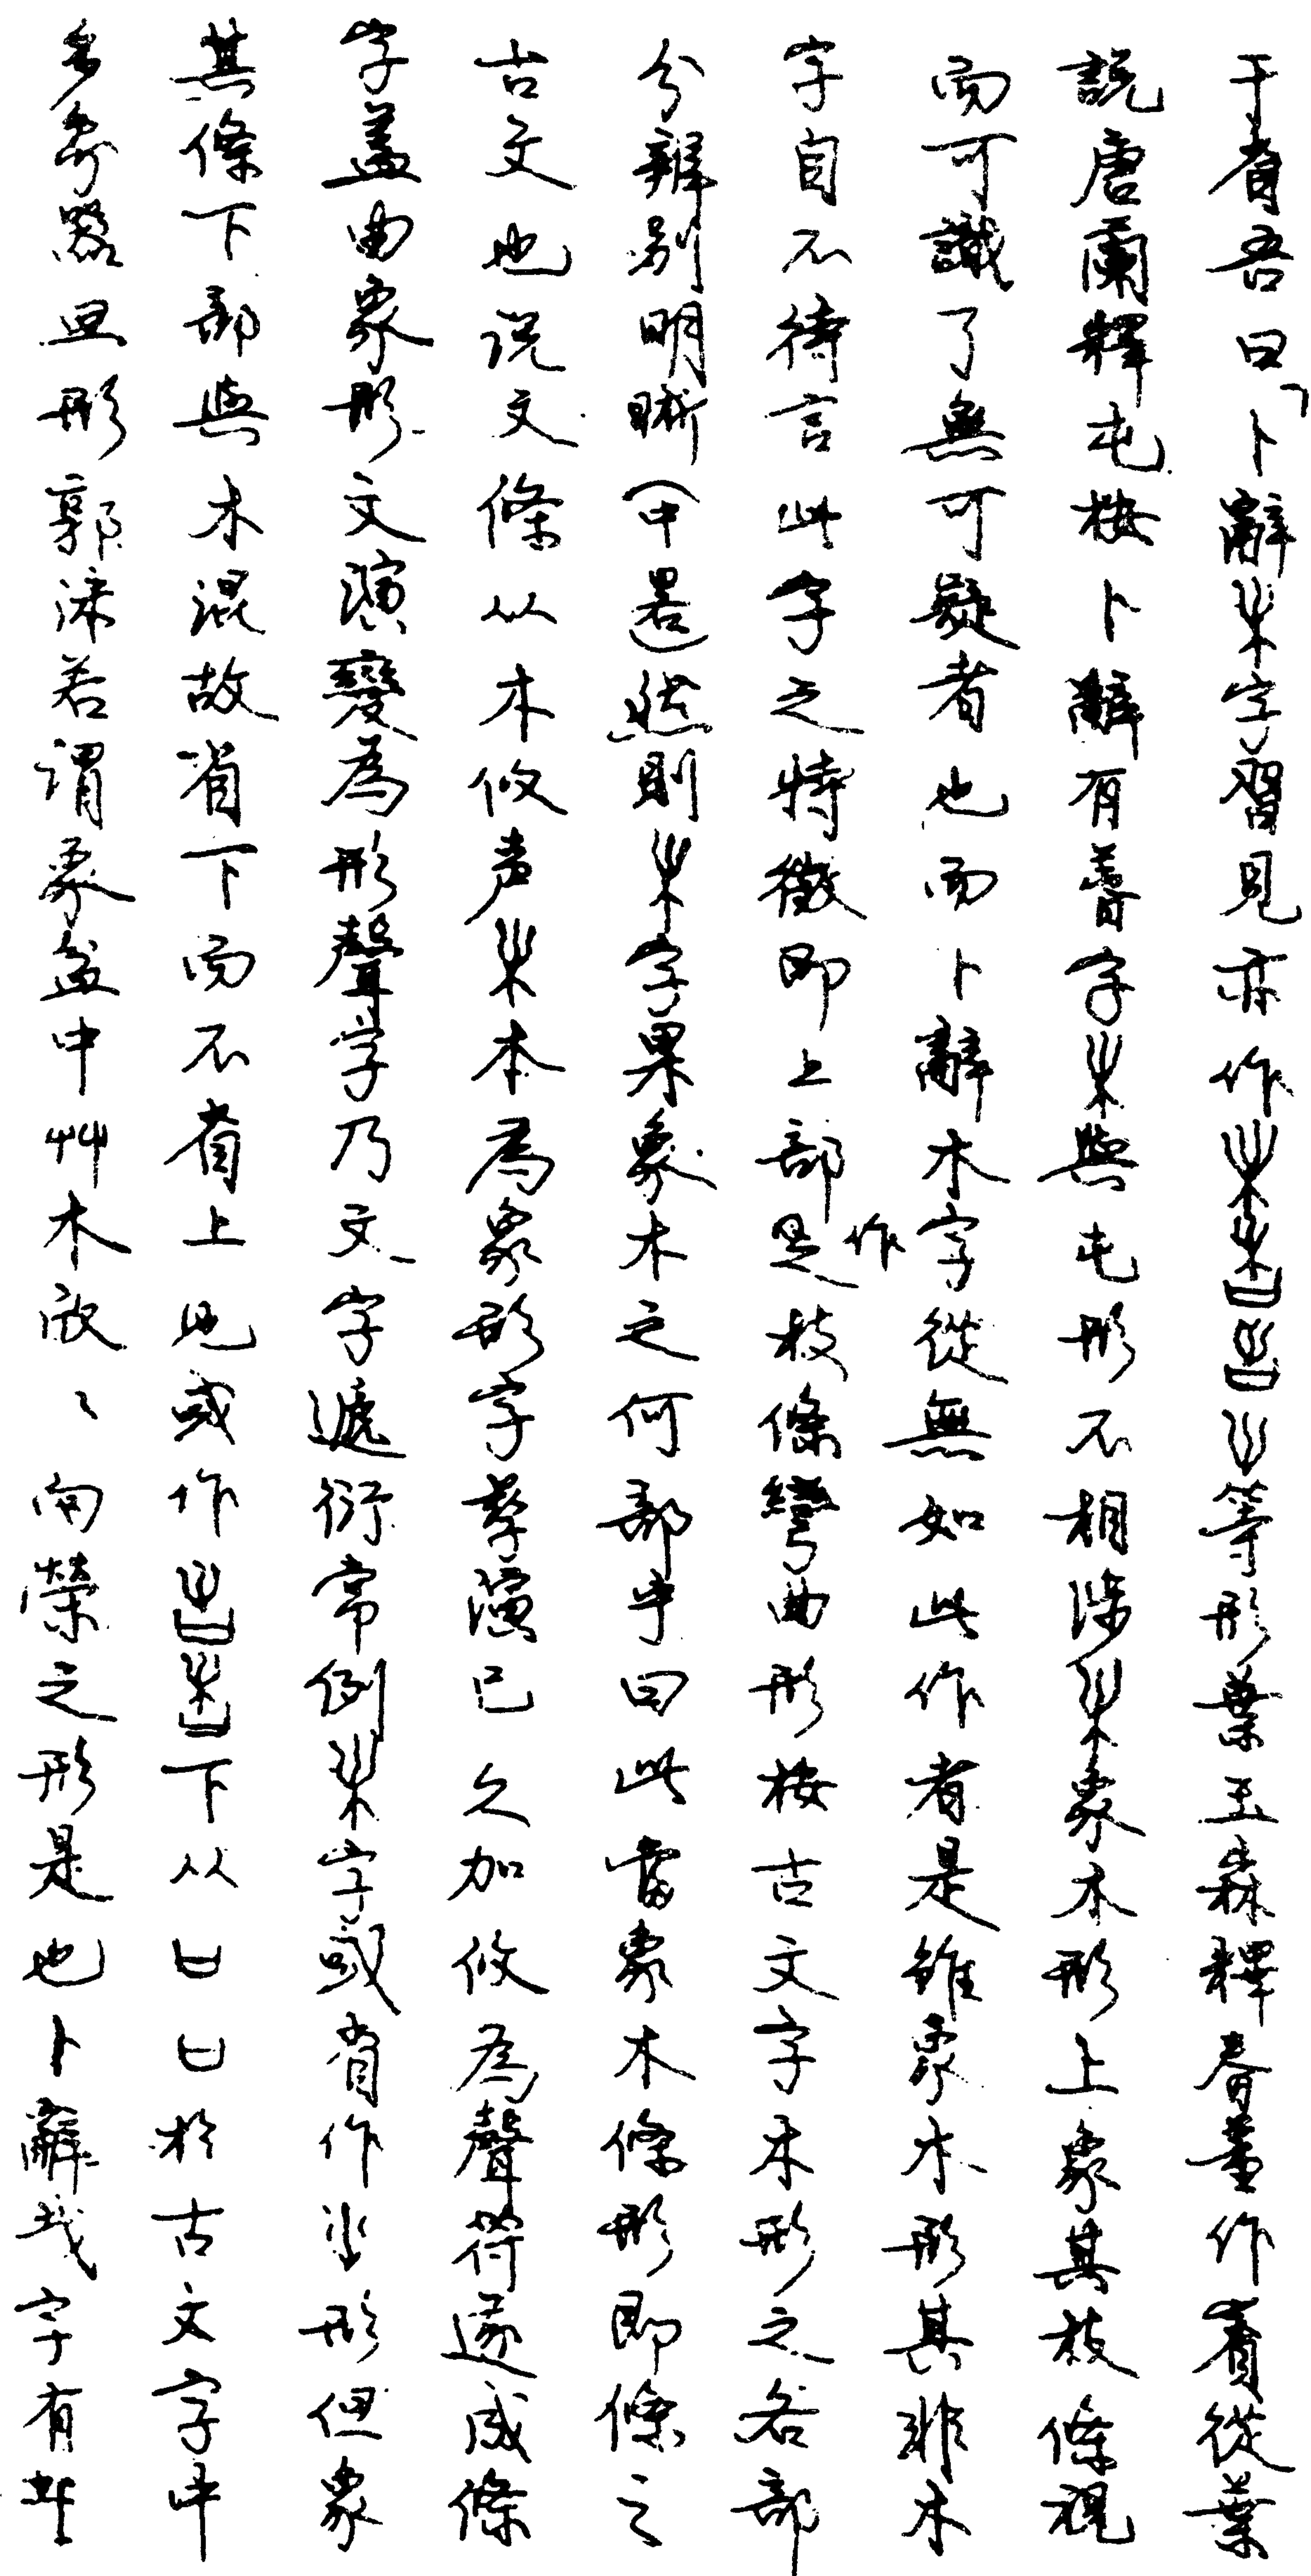 于省吾曰「卜辭字習見亦作等形葉玉森釋春董作賓從葉
說唐蘭釋屯按卜辭有萅字與屯形不相涉象木形上象其枝條視
而可識了無可疑者也而卜辭木字從無如此作者是雖象木形其非木
字自不待言此字之特徵即上部是作枝條彎曲形按古文字木形之各部
分辨別明晰(中畧)然則字果象木之何部乎曰此當象木條形即條之
古文也说文條从木攸声本為象形字孳演已久加攸為聲符遂成條
字蓋由象形文演變為形聲字乃文字遞衍常例字或省作形但象
其條下部與木混故省下而不省上也或作下从口口於古文字中
多象器皿形郭沫若謂象盆中艸木欣〻向榮之形是也卜辭字有